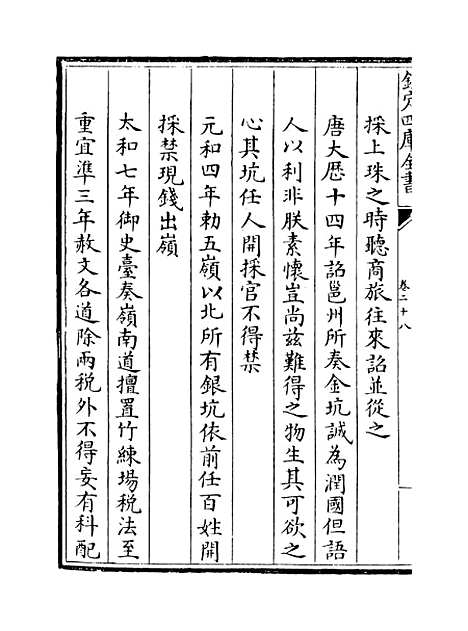 欽定四庫全書
卷二十八
採上珠之時聽商旅往來詔並從之
唐大歷十四年詔邕州所奏金坑誠為潤國但語
人以利非朕素懷豈尚兹難得之物生其可欲之
心其坑任人開採官不得禁
元和四年勅五嶺以北所有銀坑依前任百姓開
採禁現錢出嶺
太和七年御史臺奏嶺南道擅置竹練場税法至
重宜準三年赦文各道除兩税外不得妄有科配